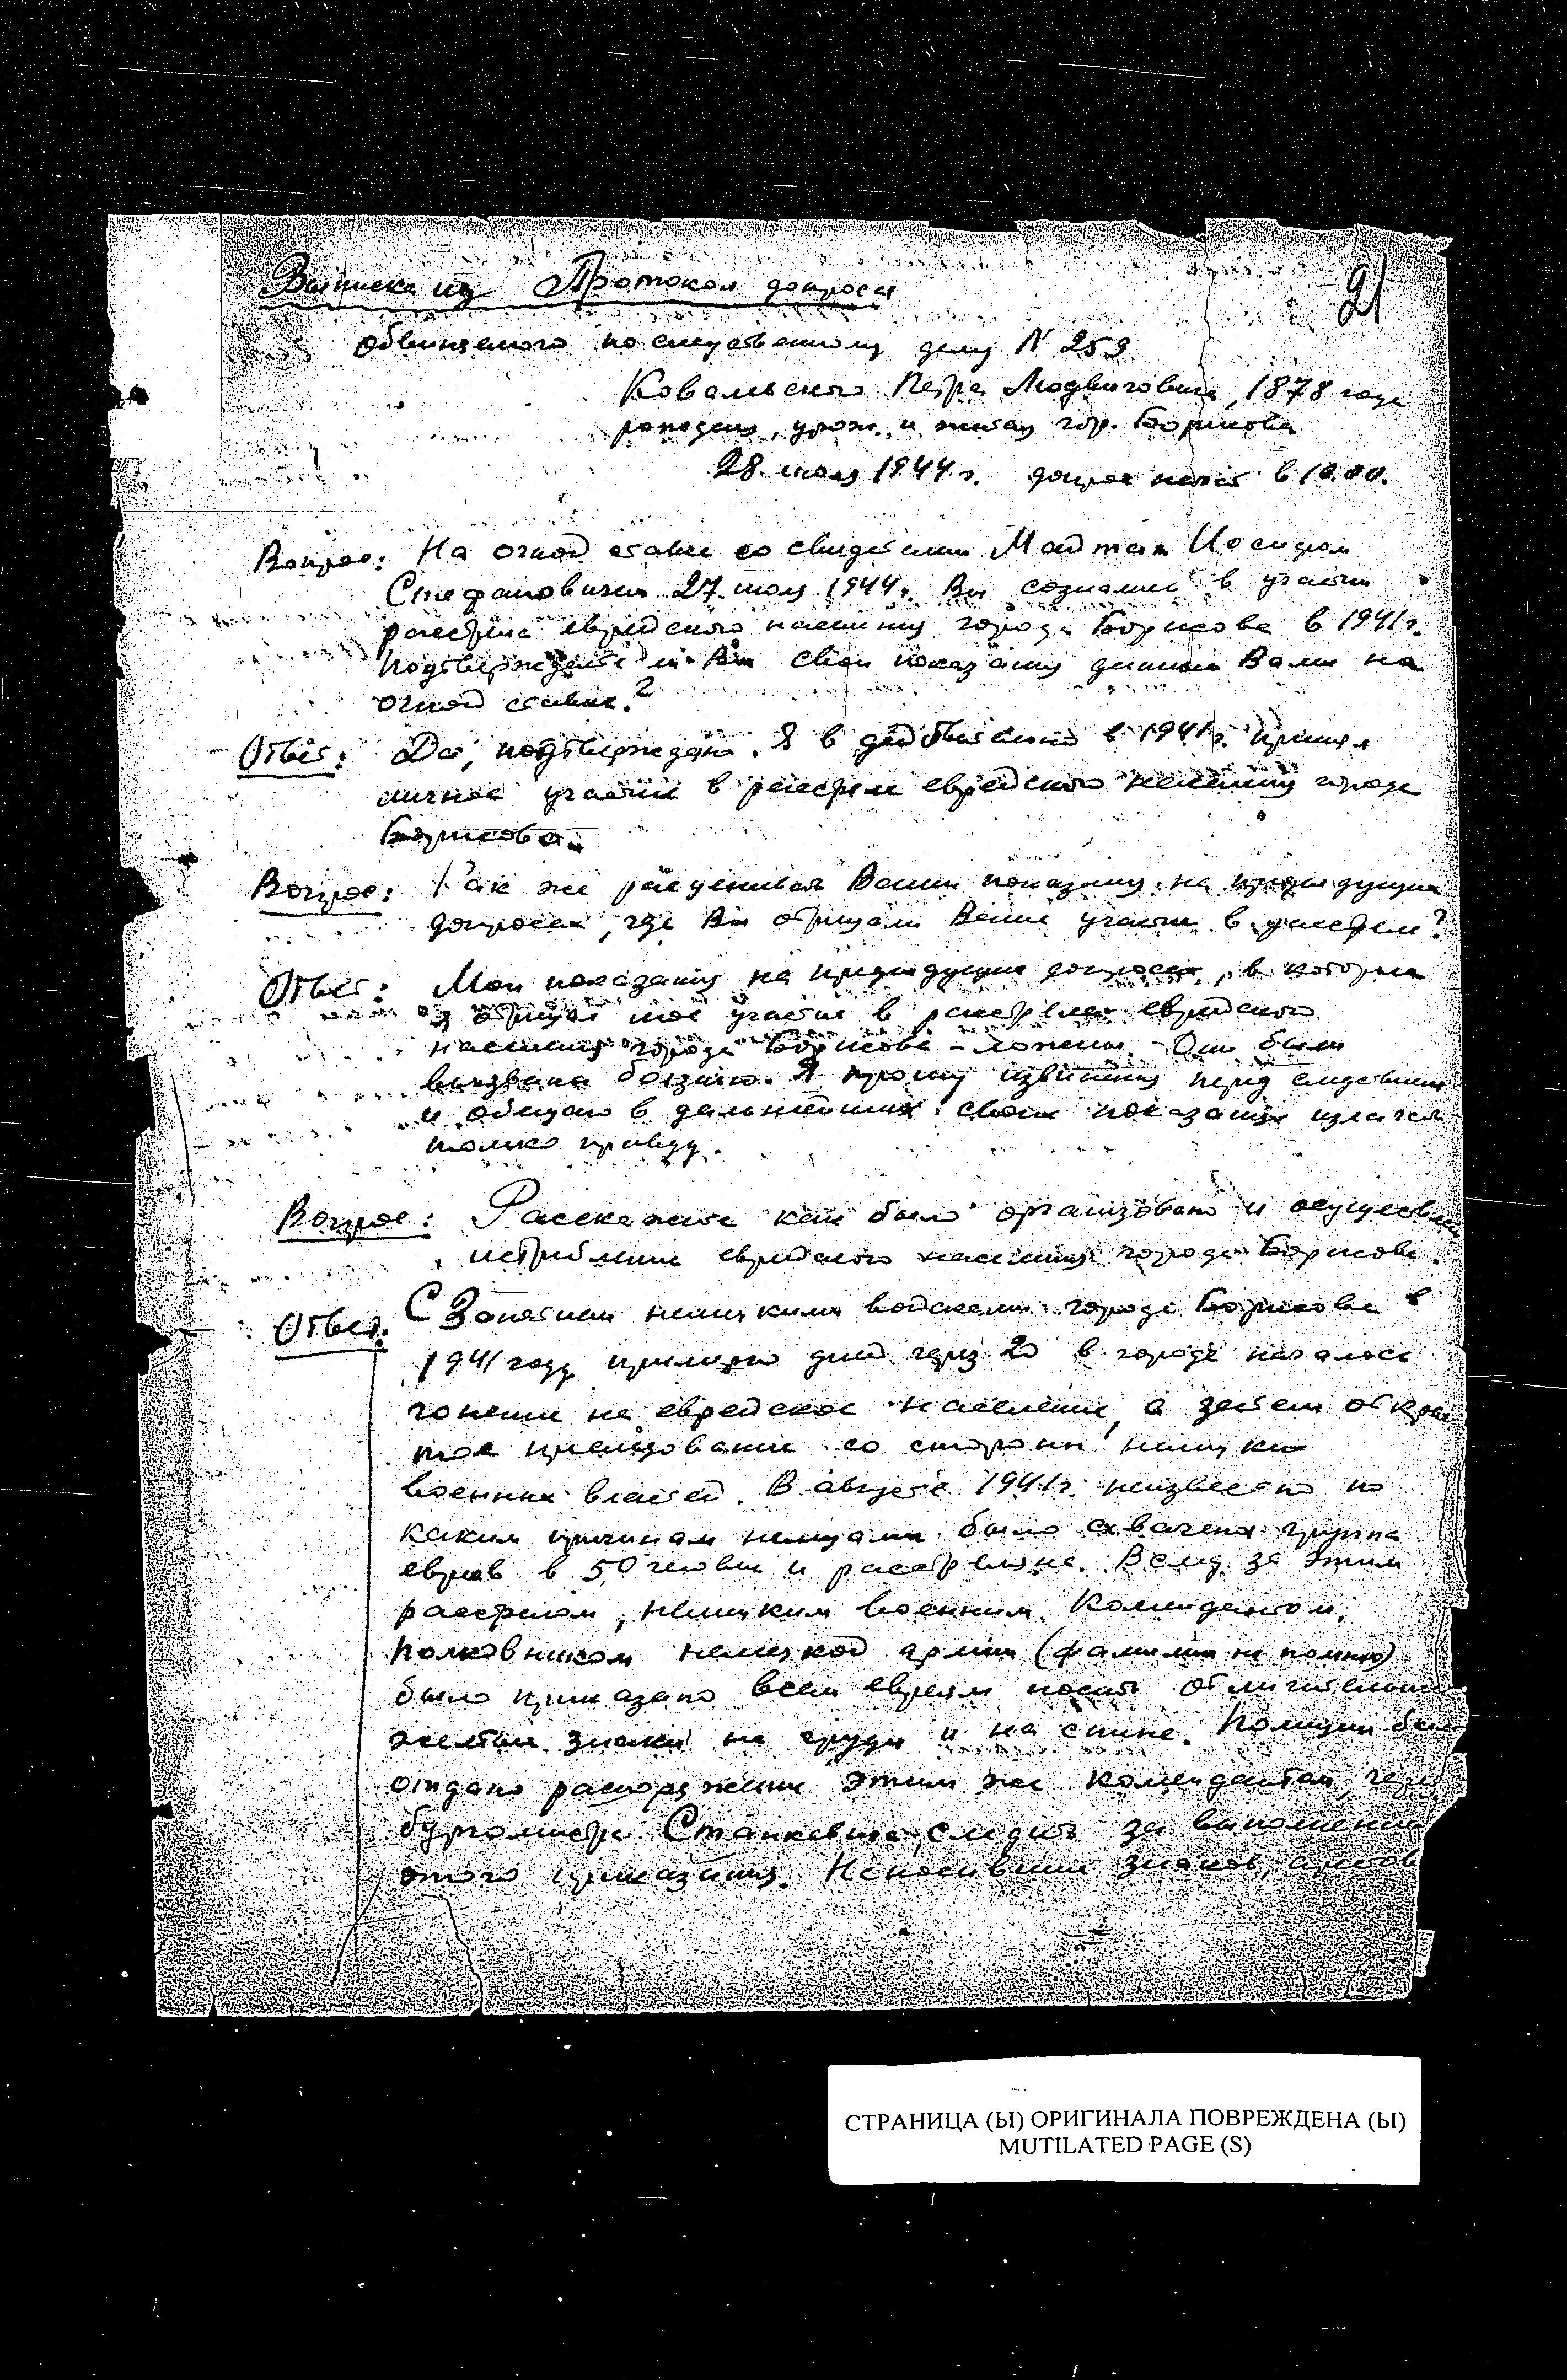 Выписка из Протокола допроса
21
обвиняемого по следственному делу N 259
Ковальского Петра Людвиговича, 1878 года
рождения, урож. и житель гор. Борисова
28 июля 1944 г. допрос начат в 10.00.
Вопрос: На очной ставке со свидетелем Майтак Иосифом
Стефановичем 27 июля 1944 г. Вы сознались в участии
расстрела еврейского населения города Борисова в 1941 г.
Подтверждаете ли Вы свои показания данные Вами на
очной ставке?
Ответ: Да, подтверждаю. Я в действительно в 1941 г. принял
личное участие в расстреле еврейского населения города
Борисова.
Вопрос: Как же расценивать Ваши показания на предыдущих
допросах, где Вы отрицали Ваше участие в расстреле?
Ответ: Мои показания на предыдущих допросах, в которых
я отрицал мое участие в расстреле еврейского
населения города Борисова - ложны. Они были
вызваны боязнью. Я прошу извинения перед следствием
и обещаю в дальнейших своих показаниях излагать
только правду.
Вопрос: Расскажите как было организовано и осуществлено
истребление еврейского населения города Борисова.
Ответ: С Занятием немецкими войсками города Борисова в
1941 году примерно дней через 20 в городе началось
гонение на еврейское население, а затем откры
тое преследование со стороны немецких
военных властей. В августе 1941 г. неизвестно по
каким причинам немцами была схвачена группа
евреев в 50 человек и расстреляна. Вслед за этим
расстрелом, немецким военным комендантом,
полковником немецкой армии (фамилии не помню)
было приказано всем евреям носить отличительные
желтые знаки на груди и на спине. Полиции было
отдано распоряжение этим же комендантом, через
бургомистра Станкевича, следить за выполнением
этого приказания. Не носивших знаков,
СТРАНИЦА (Ы) ОРИГИНАЛА ПОВРЕЖДЕНА (Ы)
MUTILATED PAGE (S)